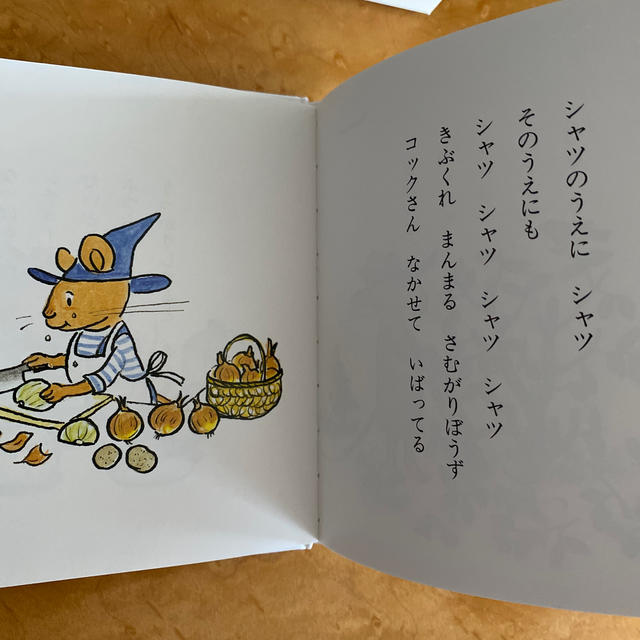 シャツのうえに　シャツ
そのうえにも
シャツ　シャツ　シャツ　シャツ
きぶくれ　まんまる　さむがりぼうず
コックさん　なかせて　いばってる